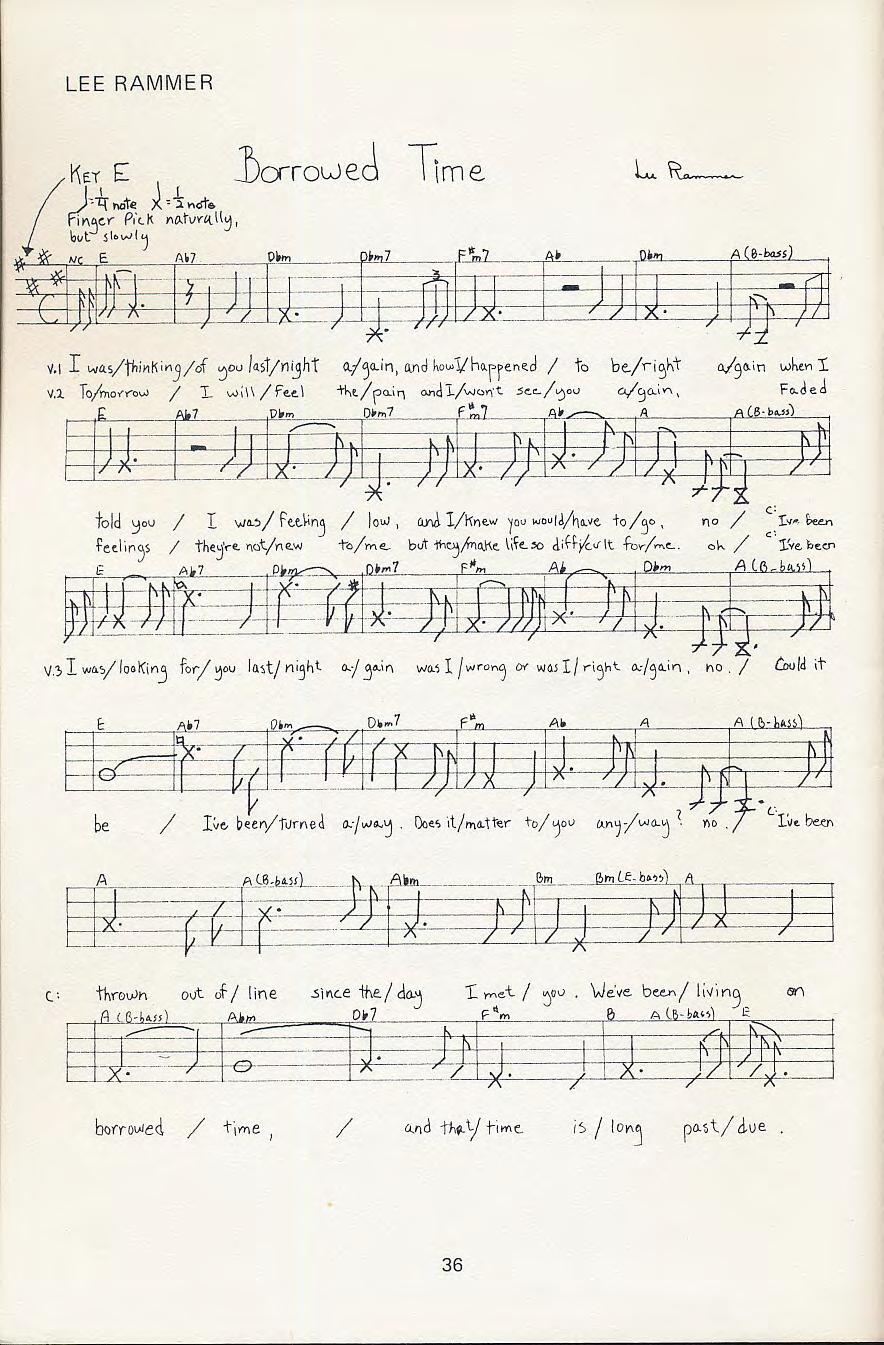 LEE RAMMER
Borrowed Time
Lee Rammer
KEY E
♩=1/4 note x=1/2 note
Finger Pick naturally,
but slowly
NC E Ab7 Dbm Dbm7 F#m7 Ab Dbm A (B-bass)
v.1 I was/thinking/of you last/night a/gain, and how I/happened / to be/right a/gain when I
v.2 To/morrow / I will/feel the/pain and I/won't see/you a/gain, Faded
E Ab7 Dbm Dbm7 F#m7 Ab A A (B-bass)
told you / I was/feeling / low, and I/knew you would/have to/go, no / C: I've been
feelings / they're not/new to/me but they/make life so diffi/cult for/me. oh / C: I've been
E Ab7 Dbm Dbm7 F#m Ab Dbm A (B-bass)
v.3 I was/looking for/you last/night a-/gain was I/wrong or was I/right a-/gain, no. / Could it
E Ab7 Dbm Dbm7 F#m Ab A A (B-bass)
be / I've been/turned a-/way. Does it/matter to/you any-/way? no. / C: I've been
A A (B-bass) Abm Bm Bm (E-bass) A
C: thrown out of/line since the/day I met/you. We've been/living on
A (B-bass) Abm Db7 F#m B A (B-bass) E
borrowed / time, / and that/time is/long past/due.
36